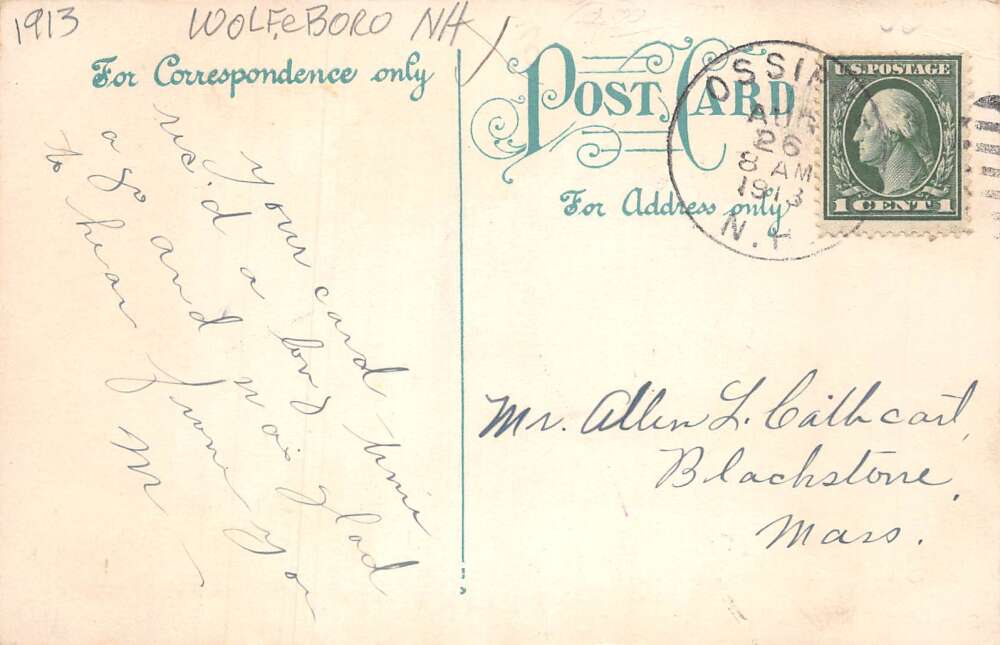 1913
WOLFeBORO NH
For Correspondence only
POST CARD
For Address only
OSSIP
AUG
26
8 AM
1913
N.H.
U.S. POSTAGE
1 CENT 1
your card time
rec.d a long
ago and was glad
to hear from you
M
Mr. Allen L. Cathcart,
Blackstone,
Mass.